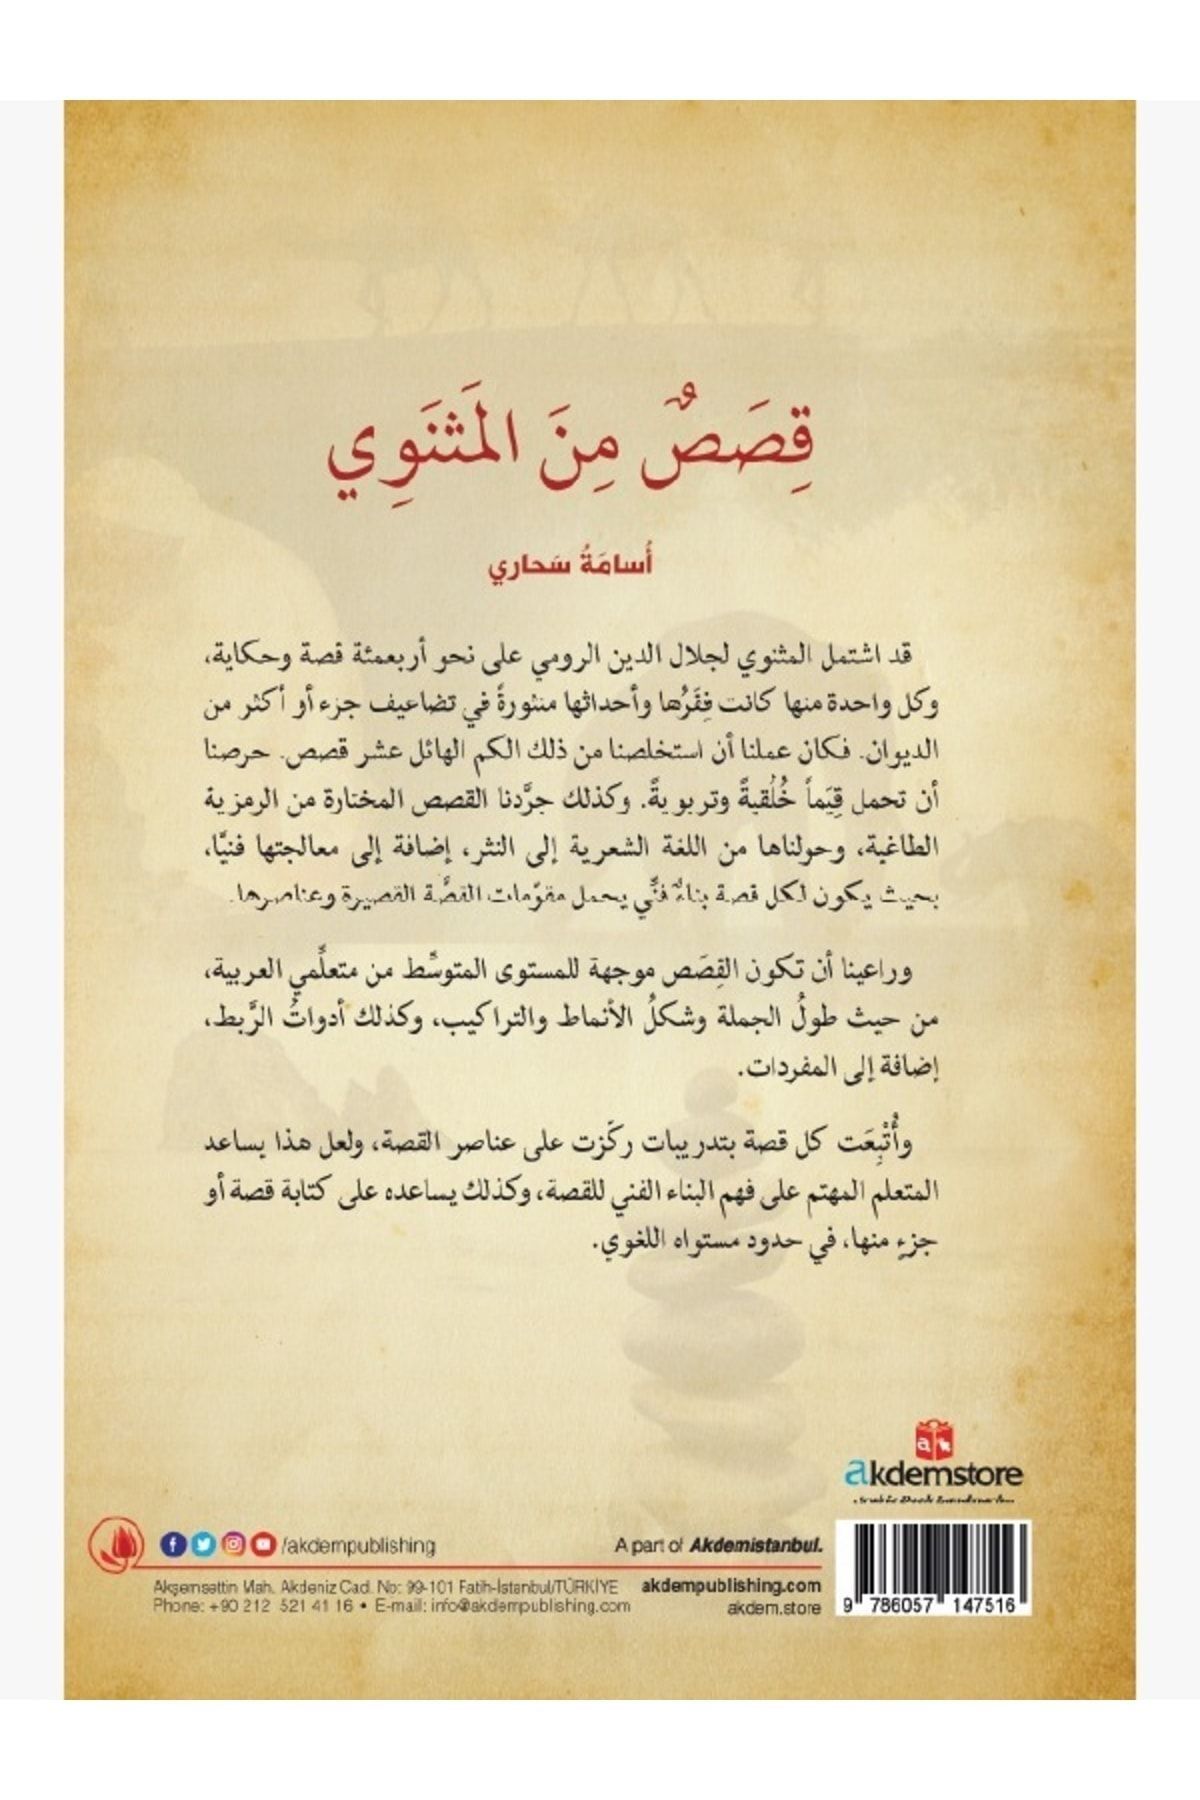 قِصَصٌ مِنَ المَثنَوِي
أُسامَةُ سَحاري
قد اشتمل المثنوي لجلال الدين الرومي على نحو أربعمئة قصة وحكاية،
وكل واحدة منها كانت فِقَرُها وأحداثها منثورةً في تضاعيف جزء أو أكثر من
الديوان. فكان عملنا أن استخلصنا من ذلك الكم الهائل عشر قصص. حرصنا
أن تحمل قِيَماً خُلُقيةً وتربويةً. وكذلك جرَّدنا القصص المختارة من الرمزية
الطاغية، وحولناها من اللغة الشعرية إلى النثر، إضافة إلى معالجتها فنيَّا،
بحيث يكون لكل قصة بناءٌ فنِّي يحمل مقوّمات القصَّة القصيرة وعناصرها.
وراعينا أن تكون القِصَص موجهة للمستوى المتوسِّط من متعلِّمي العربية،
من حيث طولُ الجملة وشكلُ الأنماط والتراكيب، وكذلك أدواتُ الرَّبط،
إضافة إلى المفردات.
وأُتْبِعَت كل قصة بتدريبات ركَزت على عناصر القصة، ولعل هذا يساعد
المتعلم المهتم على فهم البناء الفني للقصة، وكذلك يساعده على كتابة قصة أو
جزءٍ منها، في حدود مستواه اللغوي.
akdemstore
/akdempublishing
A part of Akdemistanbul.
Akşemsettin Mah. Akdeniz Cad. No: 99-101 Fatih-İstanbul/TÜRKİYE akdempublishing.com
Phone: +90 212 521 41 16 • E-mail: info@akdempublishing.com akdem.store
9 786057 147516